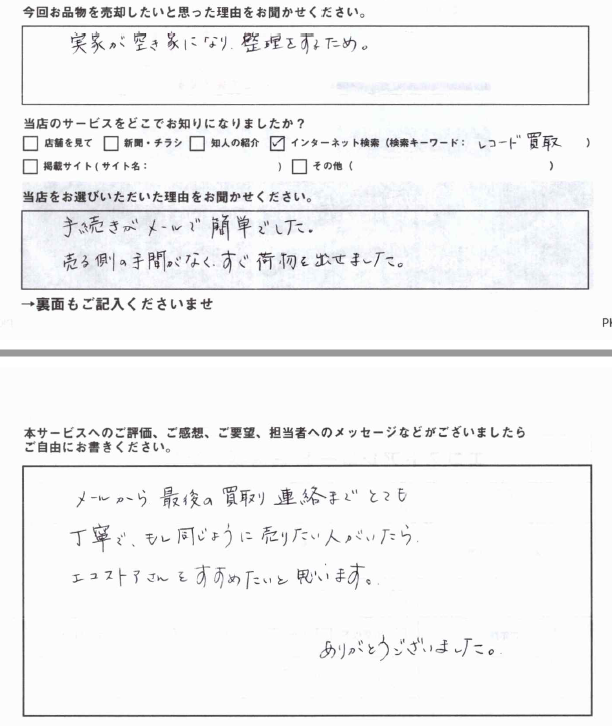 今回お品物を売却したいと思った理由をお聞かせください。
実家が空き家になり、整理をするため。
当店のサービスをどこでお知りになりましたか？
□ 店舗を見て □ 新聞・チラシ □ 知人の紹介 ☑ インターネット検索（検索キーワード： レコード買取 ）
□ 掲載サイト(サイト名： ) □ その他（ ）
当店をお選びいただいた理由をお聞かせください。
手続きがメールで簡単でした。
売る側の手間がなく、すぐ荷物を出せました。
→裏面もご記入くださいませ
PH
本サービスへのご評価、ご感想、ご要望、担当者へのメッセージなどがございましたら
ご自由にお書きください。
メールから最後の買取り連絡までとても
丁寧で、もし同じように売りたい人がいたら、
エコストアさんをすすめたいと思います。
ありがとうございました。